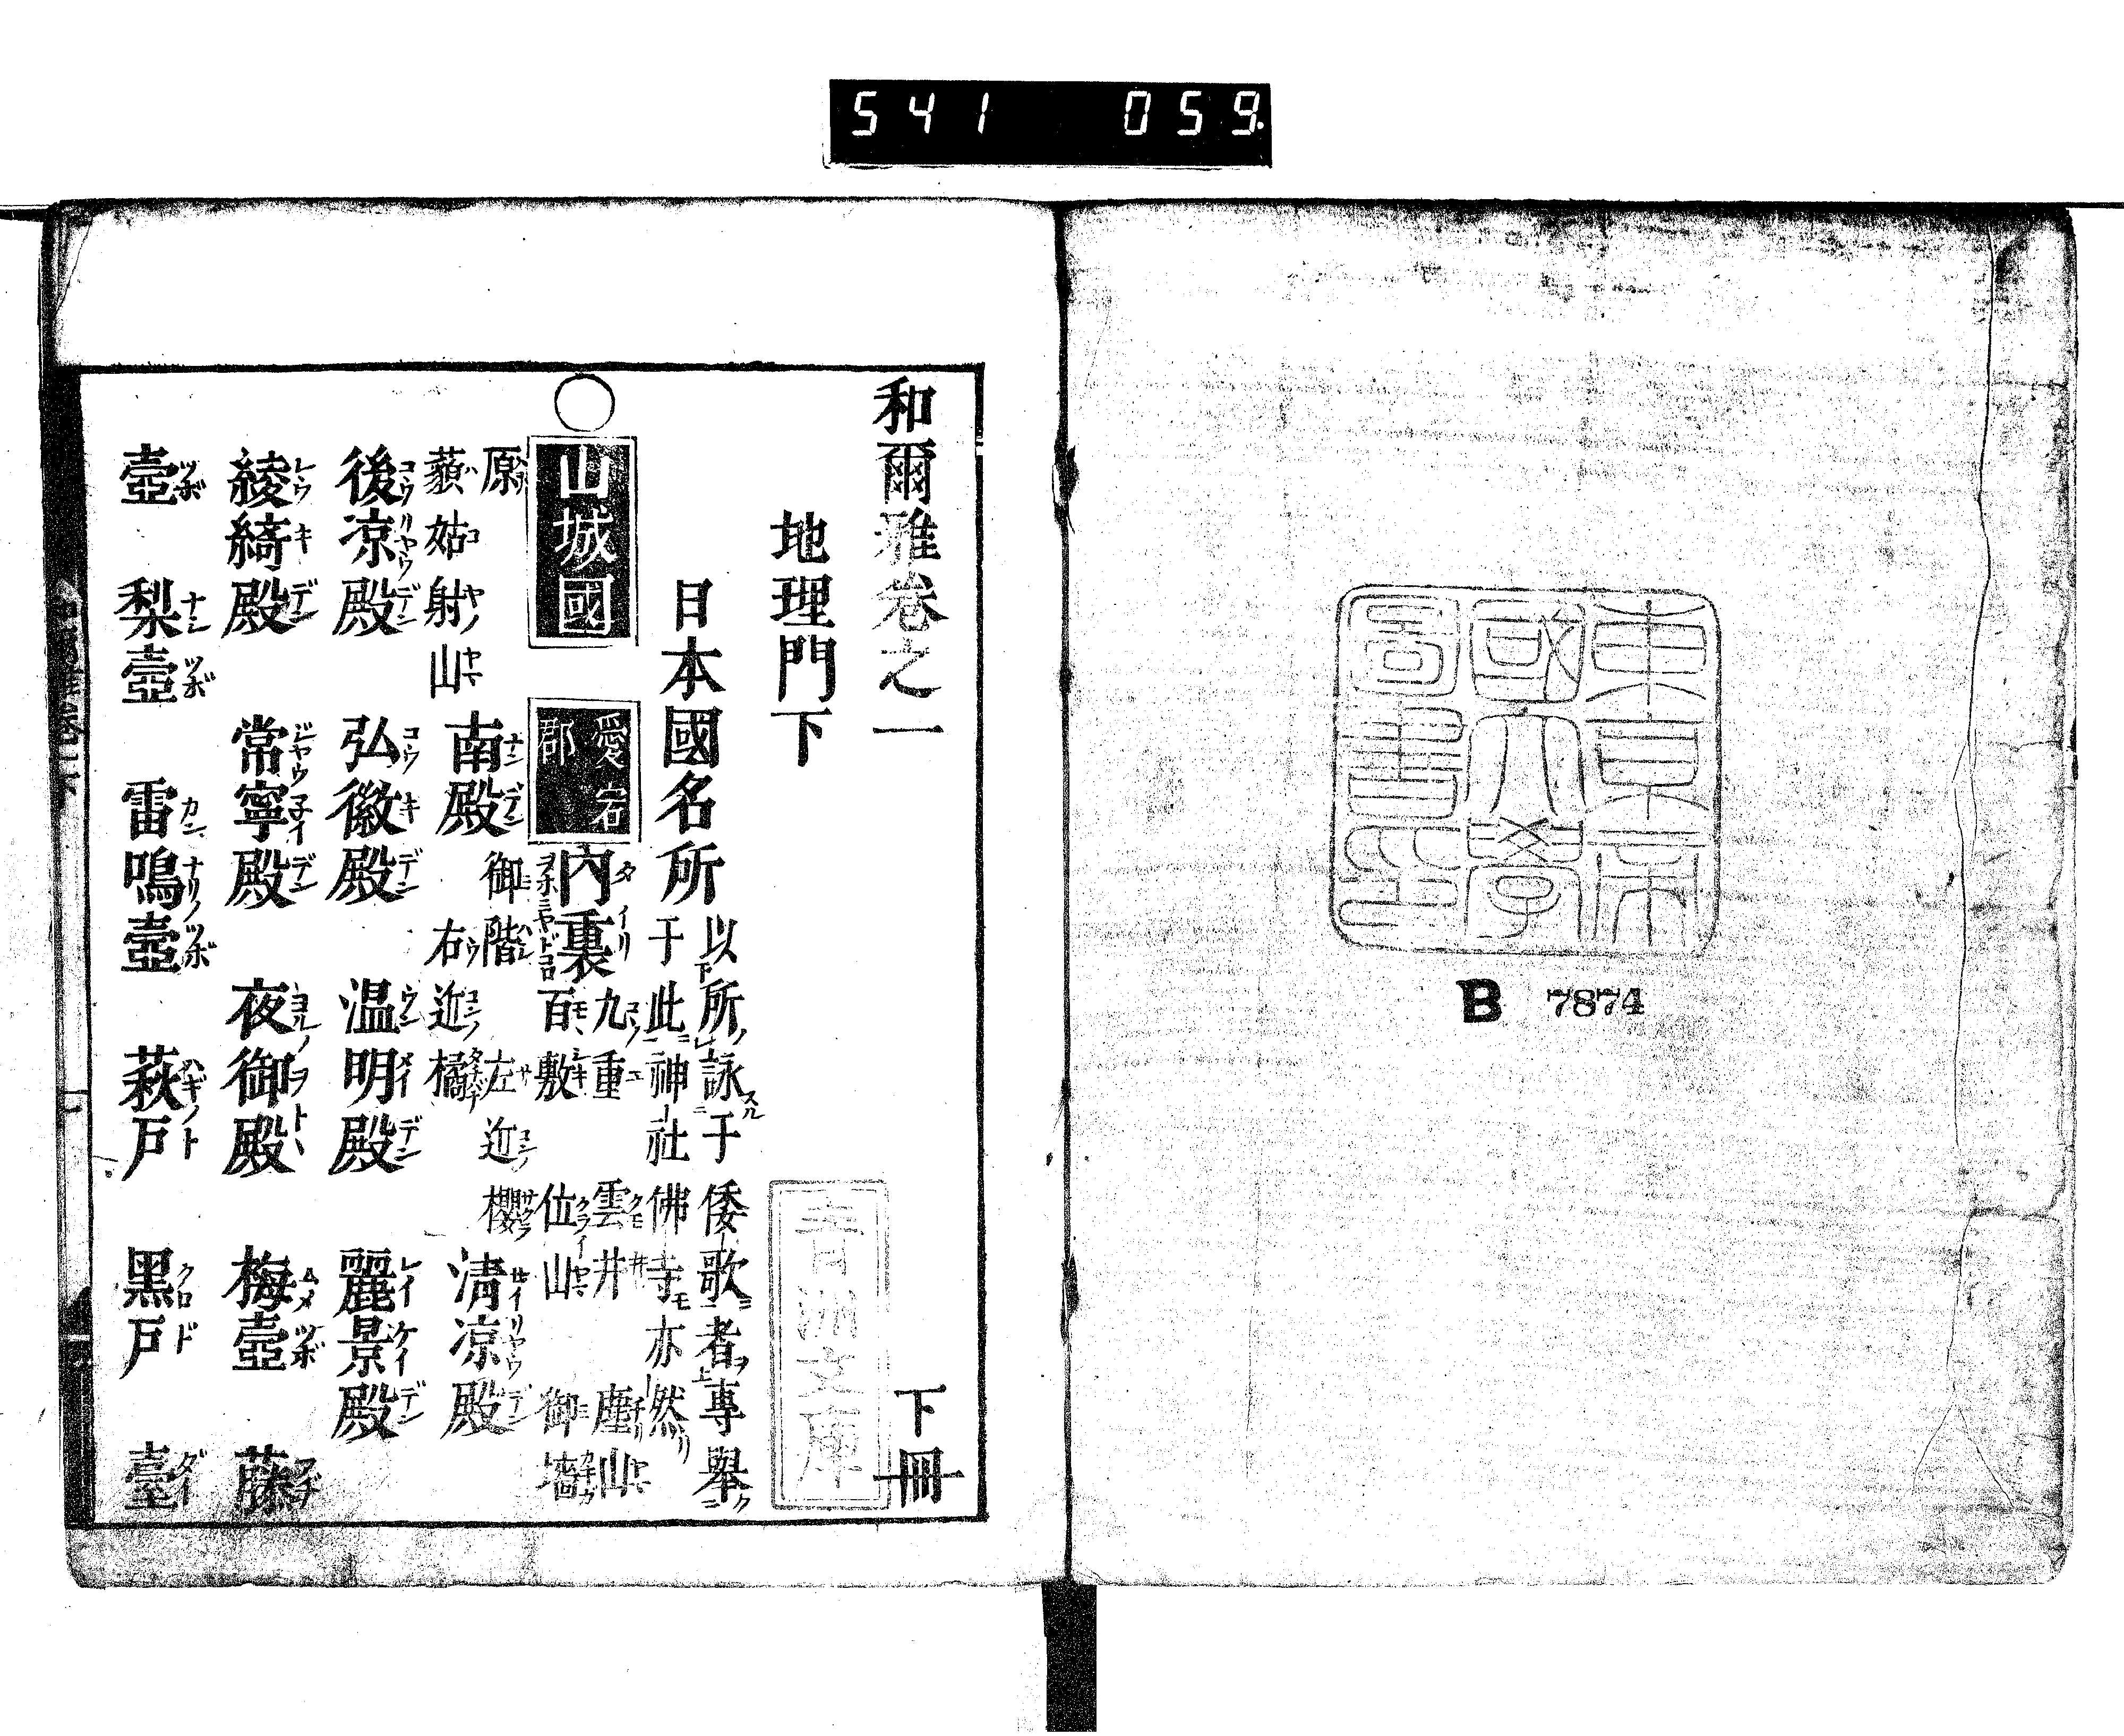 541 059.
東京帝
國大學
圖書印
B 7874
和爾雅卷之一 下冊
地理門下
日本國名所 以所詠于倭歌者專舉
于此神社佛寺亦然
青洲文庫
○山城國 愛宕郡 內裏 九重 雲井 塵山
百敷 位山 御墻
原 南殿 御階 左近櫻 清凉殿
藐姑射山 右近橘
後凉殿 弘徽殿 温明殿 麗景殿
綾綺殿 常寧殿 夜御殿 梅壺 藤
壺 梨壺 雷鳴壺 萩戸 黒戸 臺